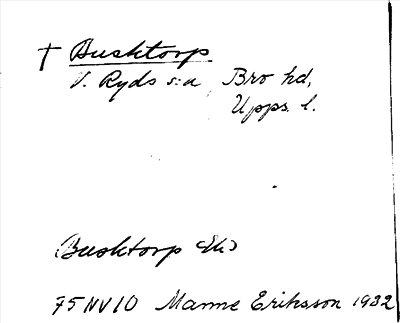 † Busktorp
V. Ryds s:a Bro hd,
Upps. l.
Busktorp (Ek)
75NV10 Manne Eriksson 1932